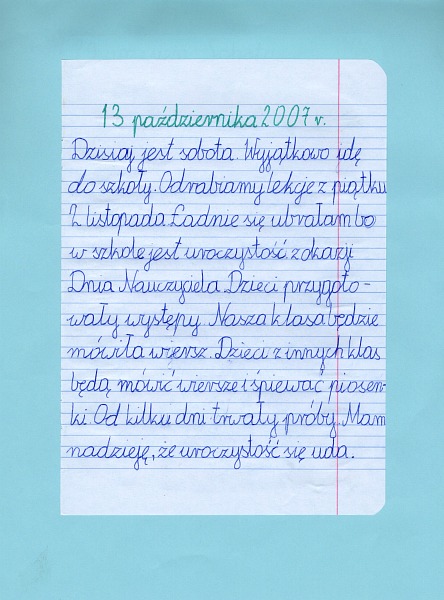 13 października 2007 r.
Dzisiaj jest sobota. Wyjątkowo idę
do szkoły. Odrabiamy lekcje z piątku
2 listopada. Ładnie się ubrałam bo
w szkole jest uroczystość z okazji
Dnia Nauczyciela. Dzieci przygoto-
wały występy. Nasza klasa będzie
mówiła wiersz. Dzieci z innych klas
będą mówić wiersze i śpiewać piosen-
ki. Od kilku dni trwały próby. Mam
nadzieję, że uroczystość się uda.